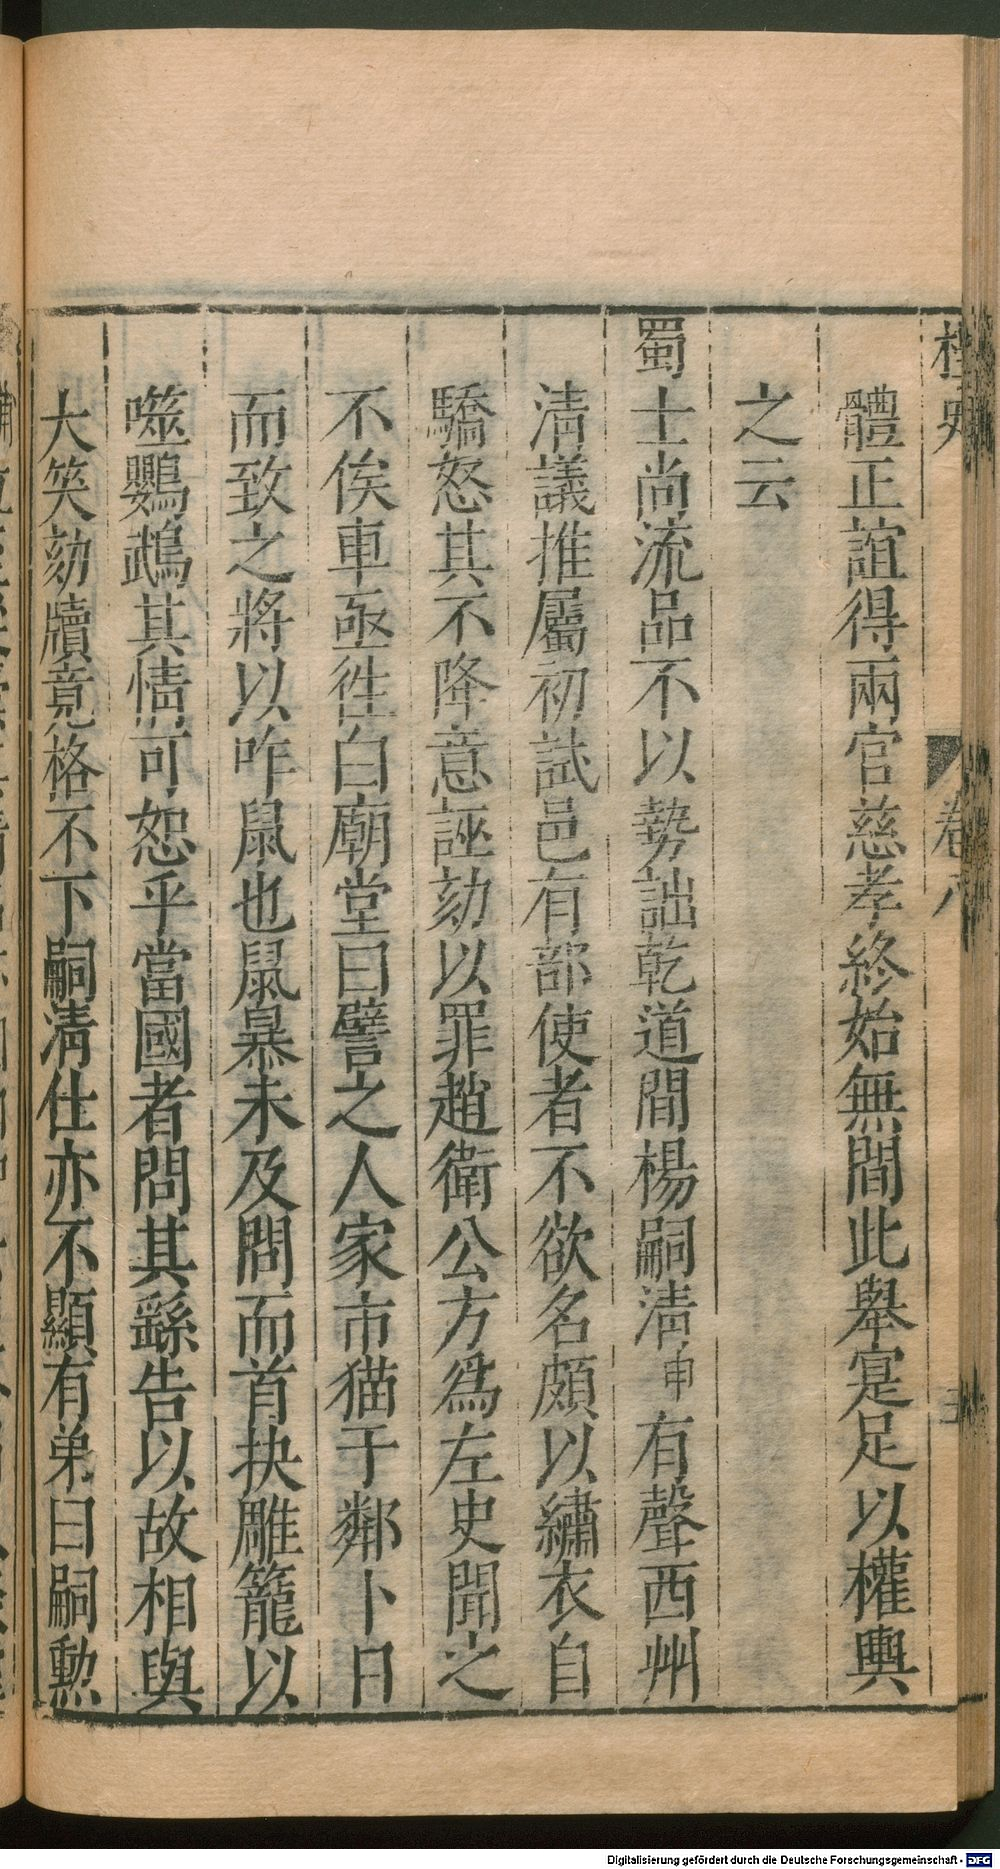 桯史
卷八
體正誼得兩官慈孝終始無間此舉寔足以權輿
之云
蜀士尚流品不以勢詘乾道間楊嗣清申有聲西州
清議推屬初試邑有部使者不欲名頗以繡衣自
驕怒其不降意誣劾以罪趙衛公方爲左史聞之
不俟車亟徃白廟堂曰譬之人家市猫于鄰卜日
而致之將以咋鼠也鼠暴未及問而首抉雕籠以
噬鸚鵡其情可恕乎當國者問其繇告以故相與
大笑劾牘竟格不下嗣清仕亦不顯有弟曰嗣勲
Digitalisierung gefördert durch die Deutsche Forschungsgemeinschaft - DFG